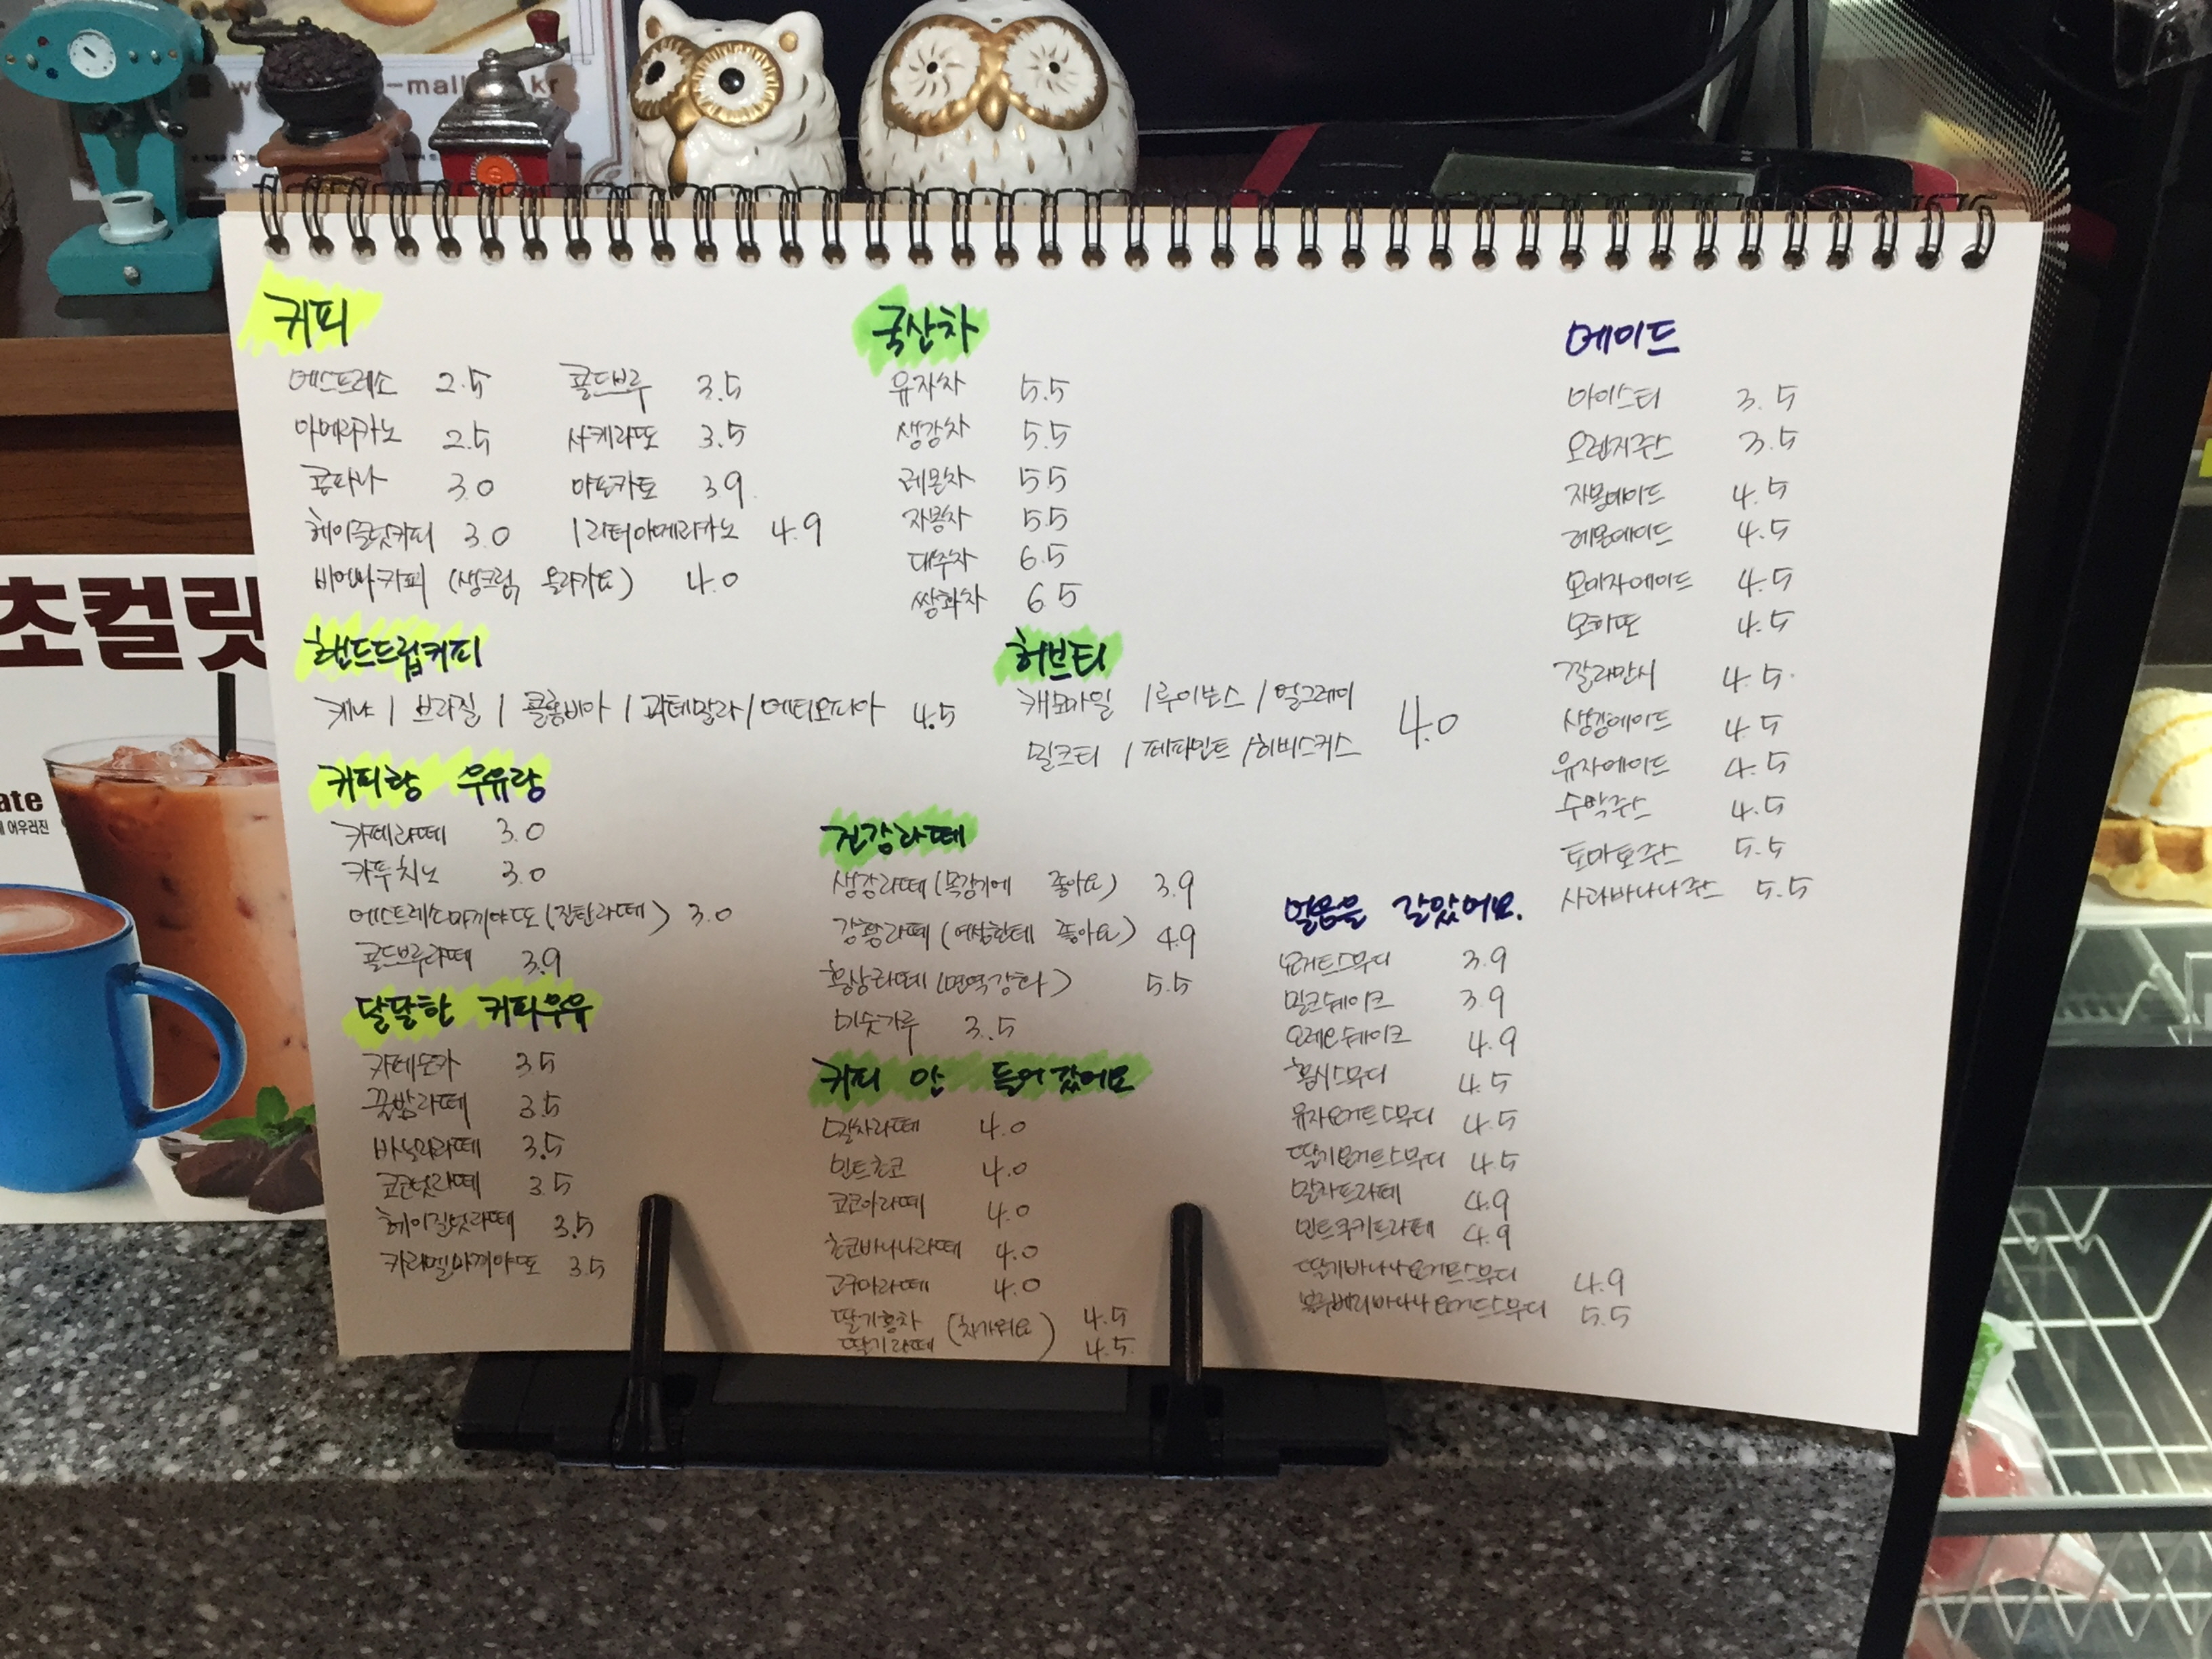 커피
에스프레소 2.5 콜드브루 3.5
아메리카노 2.5 샤케라또 3.5
콘파나 3.0 아포카토 3.9
헤이즐넛커피 3.0 1리터아메리카노 4.9
비엔나커피 (생크림 올라가요) 4.0
핸드드립커피
케냐 / 브라질 / 콜롬비아 / 과테말라 / 에티오피아 4.5
커피랑 우유랑
카페라떼 3.0
카푸치노 3.0
에스프레소마끼아또(진한라떼) 3.0
콜드브루라떼 3.9
달달한 커피우유
카페모카 3.5
꿀밤라떼 3.5
바닐라라떼 3.5
코코넛라떼 3.5
헤이즐넛라떼 3.5
카라멜마끼아또 3.5
국산차
유자차 5.5
생강차 5.5
레몬차 5.5
자몽차 5.5
대추차 6.5
쌍화차 6.5
허브티
캐모마일 / 루이보스 / 얼그레이
밀크티 / 페퍼민트 / 히비스커스 4.0
건강라떼
생강라떼(목감기에 좋아요) 3.9
강황라떼(여성한테 좋아요) 4.9
홍삼라떼(면역강화) 5.5
미숫가루 3.5
커피 안 들어갔어요
말차라떼 4.0
민트초코 4.0
코코아라떼 4.0
초코바나나라떼 4.0
고구마라떼 4.0
딸기홍차 (차가워요) 4.5
딸기라떼 4.5
에이드
아이스티 3.5
오렌지쥬스 3.5
자몽에이드 4.5
레몬에이드 4.5
오미자에이드 4.5
모히또 4.5
깔라만시 4.5
생강에이드 4.5
유자에이드 4.5
수박쥬스 4.5
토마토쥬스 5.5
사과바나나쥬스 5.5
얼음을 갈았어요.
요거트스무디 3.9
밀크쉐이크 3.9
오레오쉐이크 4.9
홍시스무디 4.5
유자요거트스무디 4.5
딸기요거트스무디 4.5
말차프라페 4.9
민트쿠키프라페 4.9
딸기바나나요거트스무디 4.9
블루베리바나나요거트스무디 5.5
초컬릿
ate
어우러진